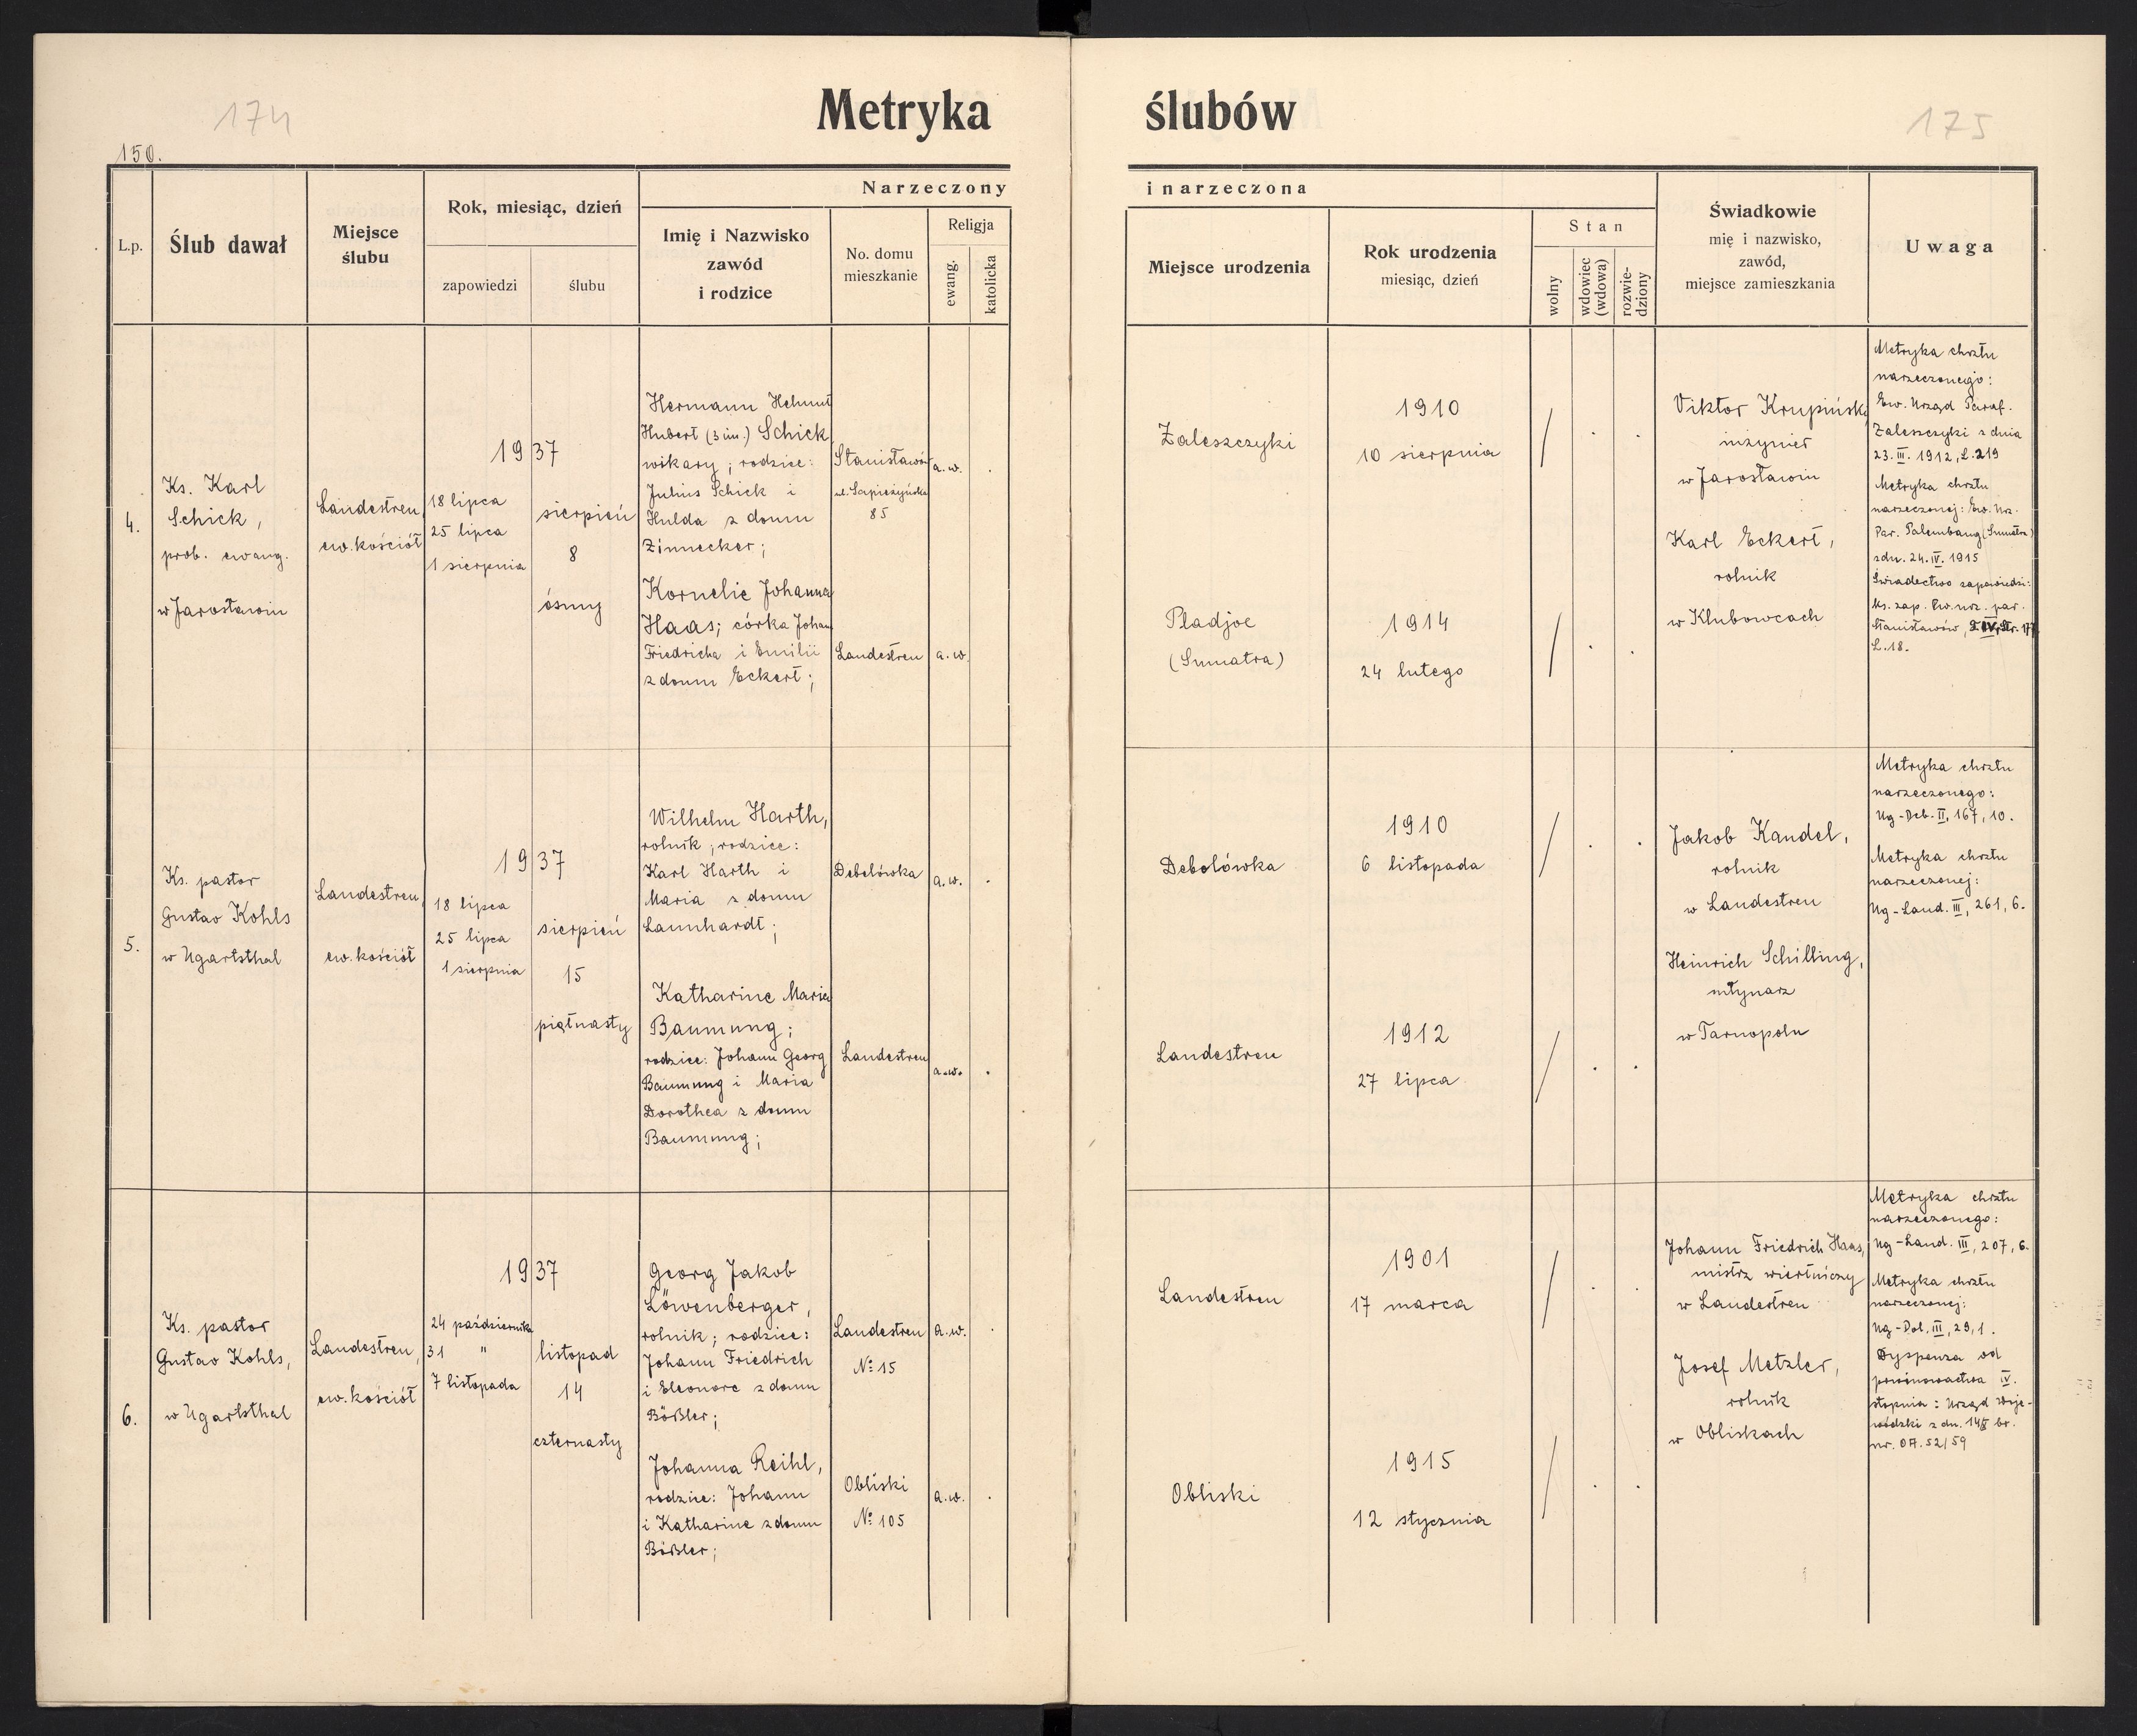 174
175
Metryka ślubów
150.
L.p.
Ślub dawał
Miejsce
ślubu
Rok, miesiąc, dzień
zapowiedzi
ślubu
Narzeczony
i narzeczona
Imię i Nazwisko
zawód
i rodzice
No. domu
mieszkanie
Religja
ewang.
katolicka
Miejsce urodzenia
Rok urodzenia
miesiąc, dzień
Stan
wolny
wdowiec
(wdowa)
rozwie-
dziony
Świadkowie
mię i nazwisko,
zawód,
miejsce zamieszkania
Uwaga
4.
Ks. Karl
Schick,
prob. ewang.
w Jarosławiu
Landestreu,
ew. kościół
1937
18 lipca
25 lipca
1 sierpnia
sierpień
8
ósmy
Hermann Helmut
Hubert (3 im.) Schick
wikary; rodzice:
Julius Schick i
Hulda z domu
Zinnecker;
Kornelie Johanna
Haas; córka Johan
Friedricha i Emilii
z domu Eckert;
Stanisławów
ul. Sapieżyńska
85
Landestreu
a.w.
a.w.
Zaleszczyki
Pladjoe
(Sumatra)
1910
10 sierpnia
1914
24 lutego
Viktor Krupiński
inżynier
w Jarosławiu
Karl Eckert,
rolnik
w Klubowcach
Metryka chrztu
narzeczonego:
Ew. Urząd Paraf.
Zaleszczyki z dnia
23. III. 1912, L. 219
Metryka chrztu
narzeczonej: Ew. Urz.
Par. Palembang (Sumatra)
z dn. 24. IV. 1915
Świadectwo zapowiedzi:
Ks. zap. Ew. urz. par.
Stanisławów, T. IV, Str. 177
L. 18.
5.
Ks. pastor
Gustav Kohls
w Ugartsthal
Landestreu,
ew. kościół
1937
18 lipca
25 lipca
1 sierpnia
sierpień
15
piętnasty
Wilhelm Harth,
rolnik; rodzice:
Karl Harth i
Maria z domu
Launhardt;
Katharine Maria
Baumung;
rodzice: Johann Georg
Baumung i Maria
Dorothea z domu
Baumung;
Debelówka
Landestreu
a.w.
a.w.
Debolówka
Landestreu
1910
6 listopada
1912
27 lipca
Jakob Kandel,
rolnik
w Landestreu
Heinrich Schilling,
młynarz
w Tarnopolu
Metryka chrztu
narzeczonego:
Ug-Deb. II, 167, 10.
Metryka chrztu
narzeczonej:
Ug-Land. III, 261, 6.
6.
Ks. pastor
Gustav Kohls,
w Ugartsthal
Landestreu,
ew. kościół
1937
24 października
31 "
7 listopada
listopad
14
czternasty
Georg Jakob
Löwenberger,
rolnik; rodzice:
Johann Friedrich
i Eleonore z domu
Bößler;
Johanna Reihl,
rodzice: Johann
i Katharine z domu
Bößler;
Landestreu
No 15
Obliski
No 105
a.w.
a.w.
Landestreu
Obliski
1901
17 marca
1915
12 stycznia
Johann Friedrich Haas,
mistrz wiertniczy
w Landestreu
Josef Metzler,
rolnik
w Obliskach
Metryka chrztu
narzeczonego:
Ug-Land. III, 207, 6.
Metryka chrztu
narzeczonej:
Ug-Dol. III, 29, 1.
Dyspenza od
powinowactwa IV.
stopnia: Urząd Woje-
wódzki z dn. br.
nr. 52/59